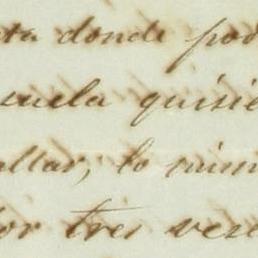 ta donde pod
cuela quisie
allar, lo mism
or tres vese